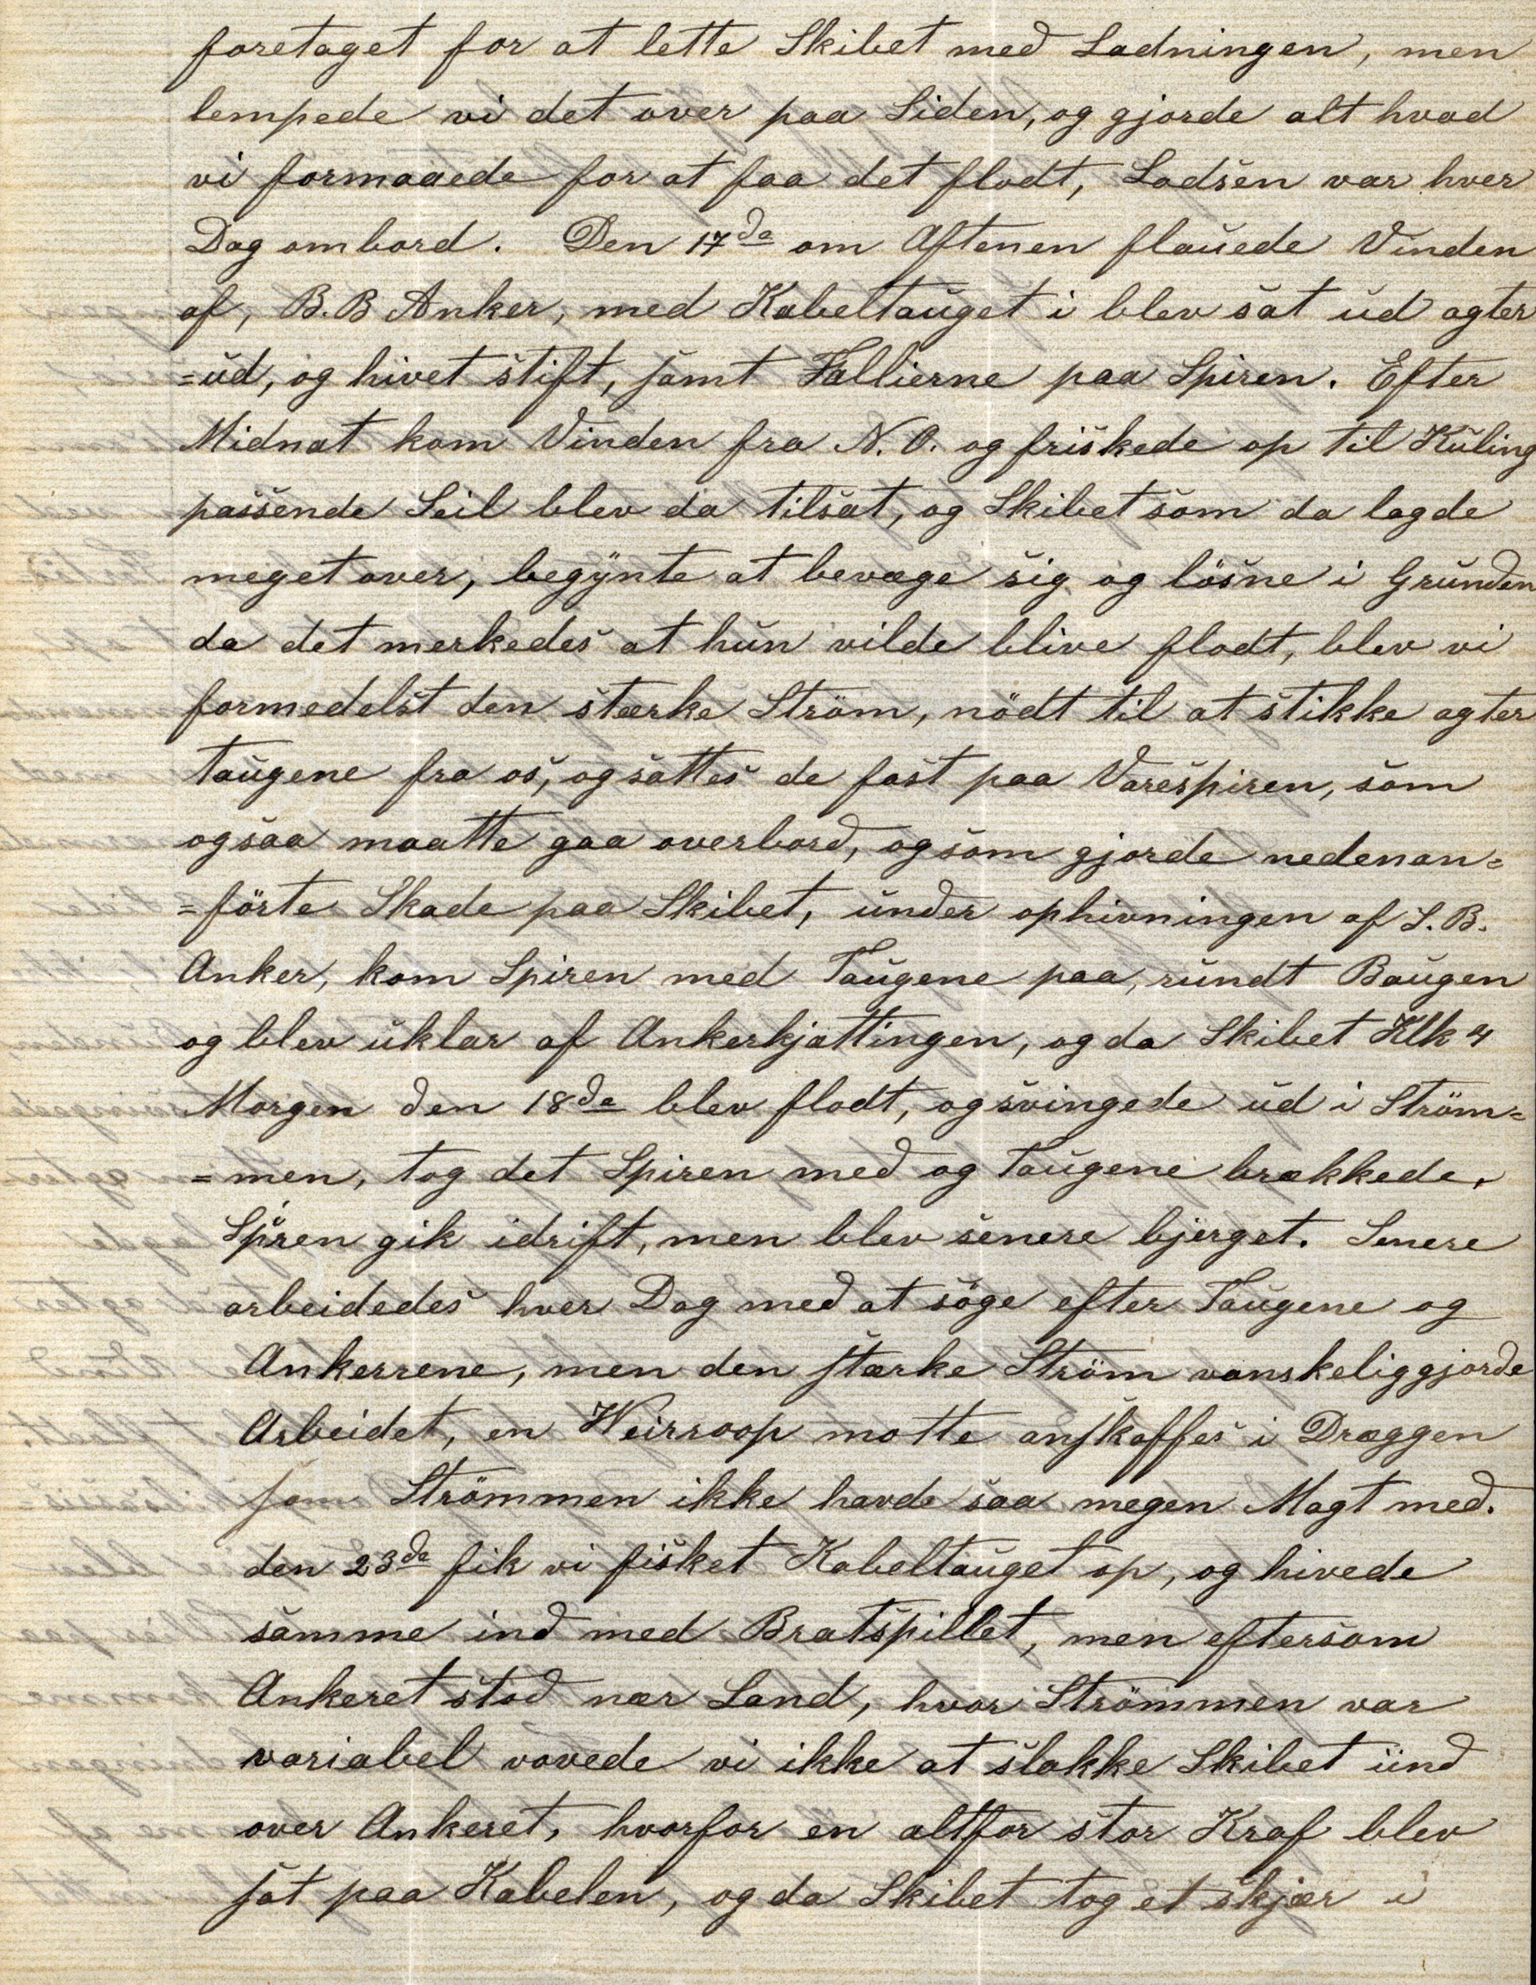 foretaget for at lette Skibet med Ladningen, men
lempede vi det over paa Siden, og gjorde alt hvad
vi formaaede for at faa det flodt, Lodsen var hver
Dag ombord. Den 17de om Aftenen flauede Vinden
af, B.B Anker, med Kabeltauget i blev sat ud agter
=ud, og hivet stift, samt Fallierne paa Spiren. Efter
Midnat kom Vinden fra N.O. og friskede op til Kuling
passende Seil blev da tilsat, og Skibet som da lagde
meget over, begynte at bevæge sig og lösne i Grunden
da det merkedes at hun vilde blive flodt, blev vi
formedelst den stærke Ström, nödt til at stikke agter
taugene fra os, og sattes de fast paa Varespiren, som
ogsaa maatte gaa overbord, og som gjorde nedenan=
=förte Skade paa Skibet, under ophivningen af S.B.
Anker, kom Spiren med Taugene paa, rundt Baugen
og blev uklar af Ankerkjættingen, og da Skibet Klk 4
Morgen den 18de blev flodt, og svingede ud i Ström=
=men, tog det Spiren med og Taugene brækkede.
Spiren gik idrift, men blev senere bjerget. Senere
arbeidedes hver Dag med at söge efter Taugene og
Ankerrene, men den stærke Ström vanskeliggjorde
Arbeidet, en Weirroop motte anskaffes i Dræggen
som Strömmen ikke havde saa megen Magt med.
den 23de fik vi fisket Kabeltauget op, og hivede
samme ind med Bratspillet, men eftersom
Ankeret stod nær Land, hvor Strömmen var
variabel vovede vi ikke at slakke Skibet ind
over Ankeret, hvorfor en altfor stor Kraf blev
sat paa Kabelen, og da Skibet tog et skjær i